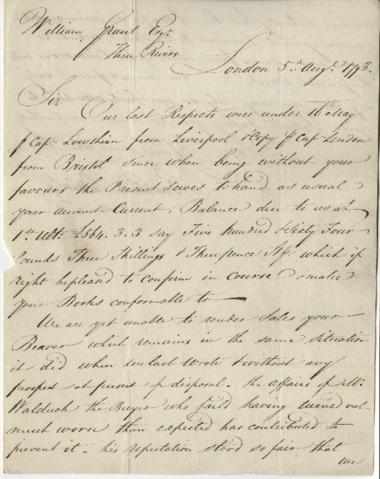 William Grant Esqr
Three Rivers
London 5th Augst 1793.
Sir
Our last Respects were under 16 May
p Cap. Lowthian from Liverpool & Copy p Cap London
from Bristol since when being without your
favours the Present serves to hand as usual
your Account Current, Balance due to us at
1st Ulto £564.3.3 Say Five Hundred & Sixty Four
Pounds Three Shillings & Threepence Stg. which if
right be pleased to confirm in course & make
your Books conformable to —
We are yet unable to render Sales your
Beaver which remains in the same situation
it did when we last wrote & without any
prospect at present of disposal. the affairs of Mr.
Walduck the Buyer who faild having turned out
much worse than expected has contributed to
prevent it — his reputation stood so fair that
we